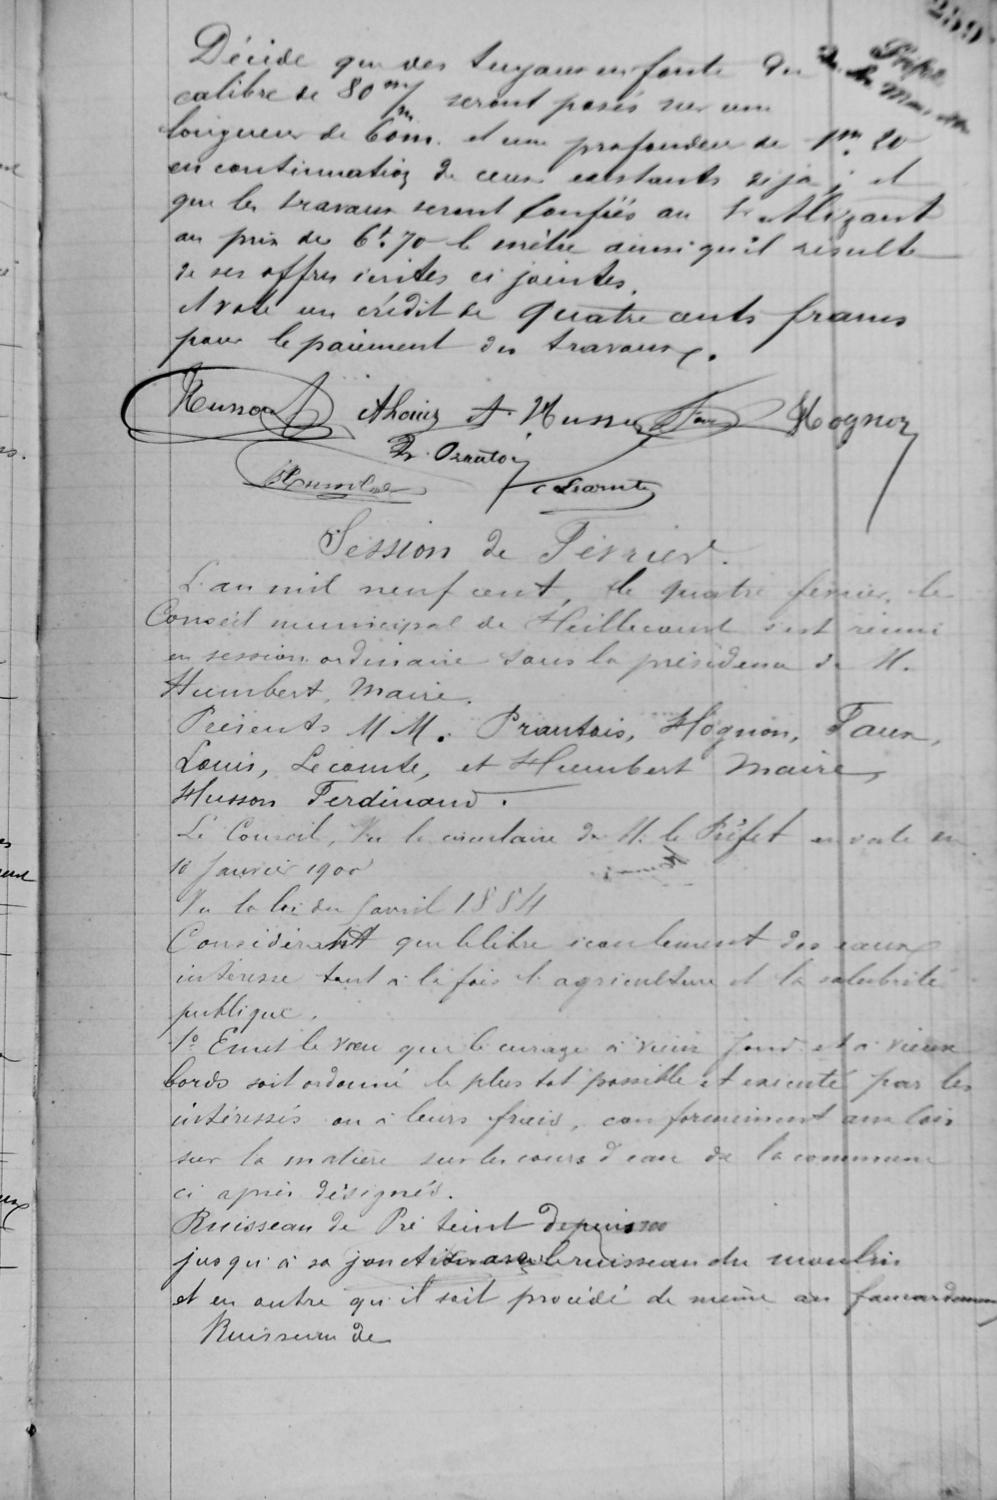 259
Préfet
de la
Décide que des tuyaux en fonte du
calibre de 80 m/m seront posés sur une
longueur de 60m. et une profondeur de 1m.20
en continuation de ceux existants déjà ; et
que les travaux seront confiés au Sr Alizant
au prix de 6f.70 le mètre ainsi qu'il résulte
de ses offres écrites ci jointes.
et vote un crédit de quatre cents francs
pour le paiement des travaux.
Husson Thouin A. Husson Faux Hognon
Prautois
Humbert Lecomte
Session de Février.
L'an mil neuf cent, le quatre février, le
Conseil municipal de Heillecourt s'est réuni
en session ordinaire sous la présidence de M.
Humbert, Maire.
Présents M M. Prautois, Hognon, Faux,
Louis, Lecomte, et Humbert Maire,
Husson Ferdinand.
Le Conseil, Vu la circulaire de M. le Préfet en date du
10 Janvier 1900
Vu la loi du 5 avril 1884
Considérant que le libre écoulement des eaux
intéresse tout à la fois l'agriculture et la salubrité
publique.
1° Emet le vœu que le curage à vieux fond et à vieux
bords soit ordonné le plus tôt possible et exécuté par les
intéressés ou à leurs frais, conformément aux lois
sur la matière sur les cours d'eau de la commune
ci après désignés.
Ruisseau de Pré teint depuis
jusqu'à sa jonction avec le ruisseau du moulin
et en outre qu'il soit procédé de même au faucardement
Ruisseau de